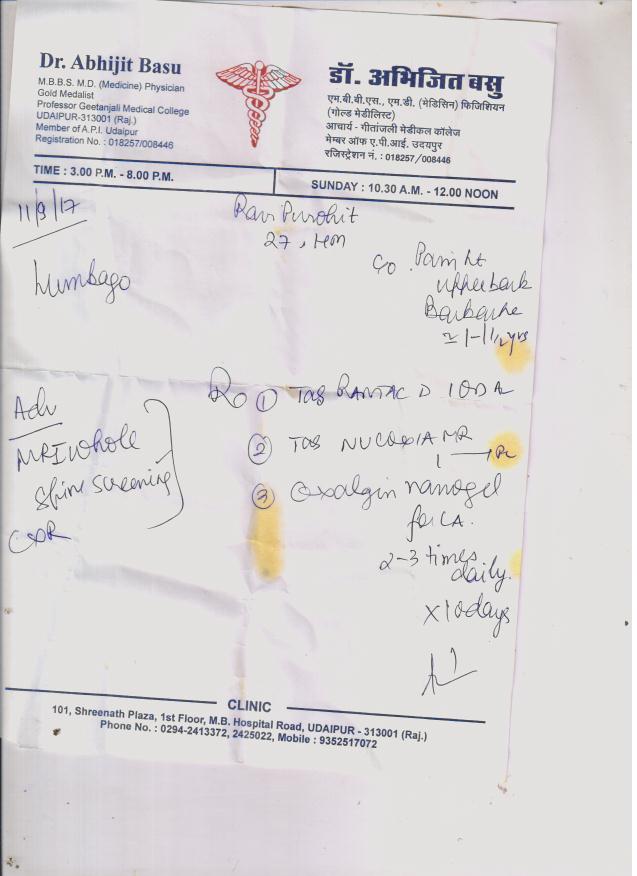 Dr. Abhijit Basu
M.B.B.S. M.D. (Medicine) Physician
Gold Medalist
Professor Geetanjali Medical College
UDAIPUR-313001 (Raj.)
Member of A.P.I. Udaipur
Registration No. : 018257/008446
डॉ. अभिजित बसु
एम.बी.बी.एस., एम.डी. (मेडिसिन) फिजिशियन
(गोल्ड मेडीलिस्ट)
आचार्य - गीतांजली मेडीकल कॉलेज
मेम्बर ऑफ ए.पी.आई. उदयपुर
रजिस्ट्रेशन नं. : 018257/008446
TIME : 3.00 P.M. - 8.00 P.M.
SUNDAY : 10.30 A.M. - 12.00 NOON
11/3/17
Ravi Purohit
27,
Lumbago
C/o Pain Lt
upper back
Backache
1-1 1/2 yrs
Adv
MRI whole
Spine screening
CXR
Rx ① TAB RANTAC D 1 OD
② TAB NUCOXIA MR
1
③ Oxalgin nanogel
for LA.
2-3 times
daily.
X10days
CLINIC
101, Shreenath Plaza, 1st Floor, M.B. Hospital Road, UDAIPUR - 313001 (Raj.)
Phone No. : 0294-2413372, 2425022, Mobile : 9352517072